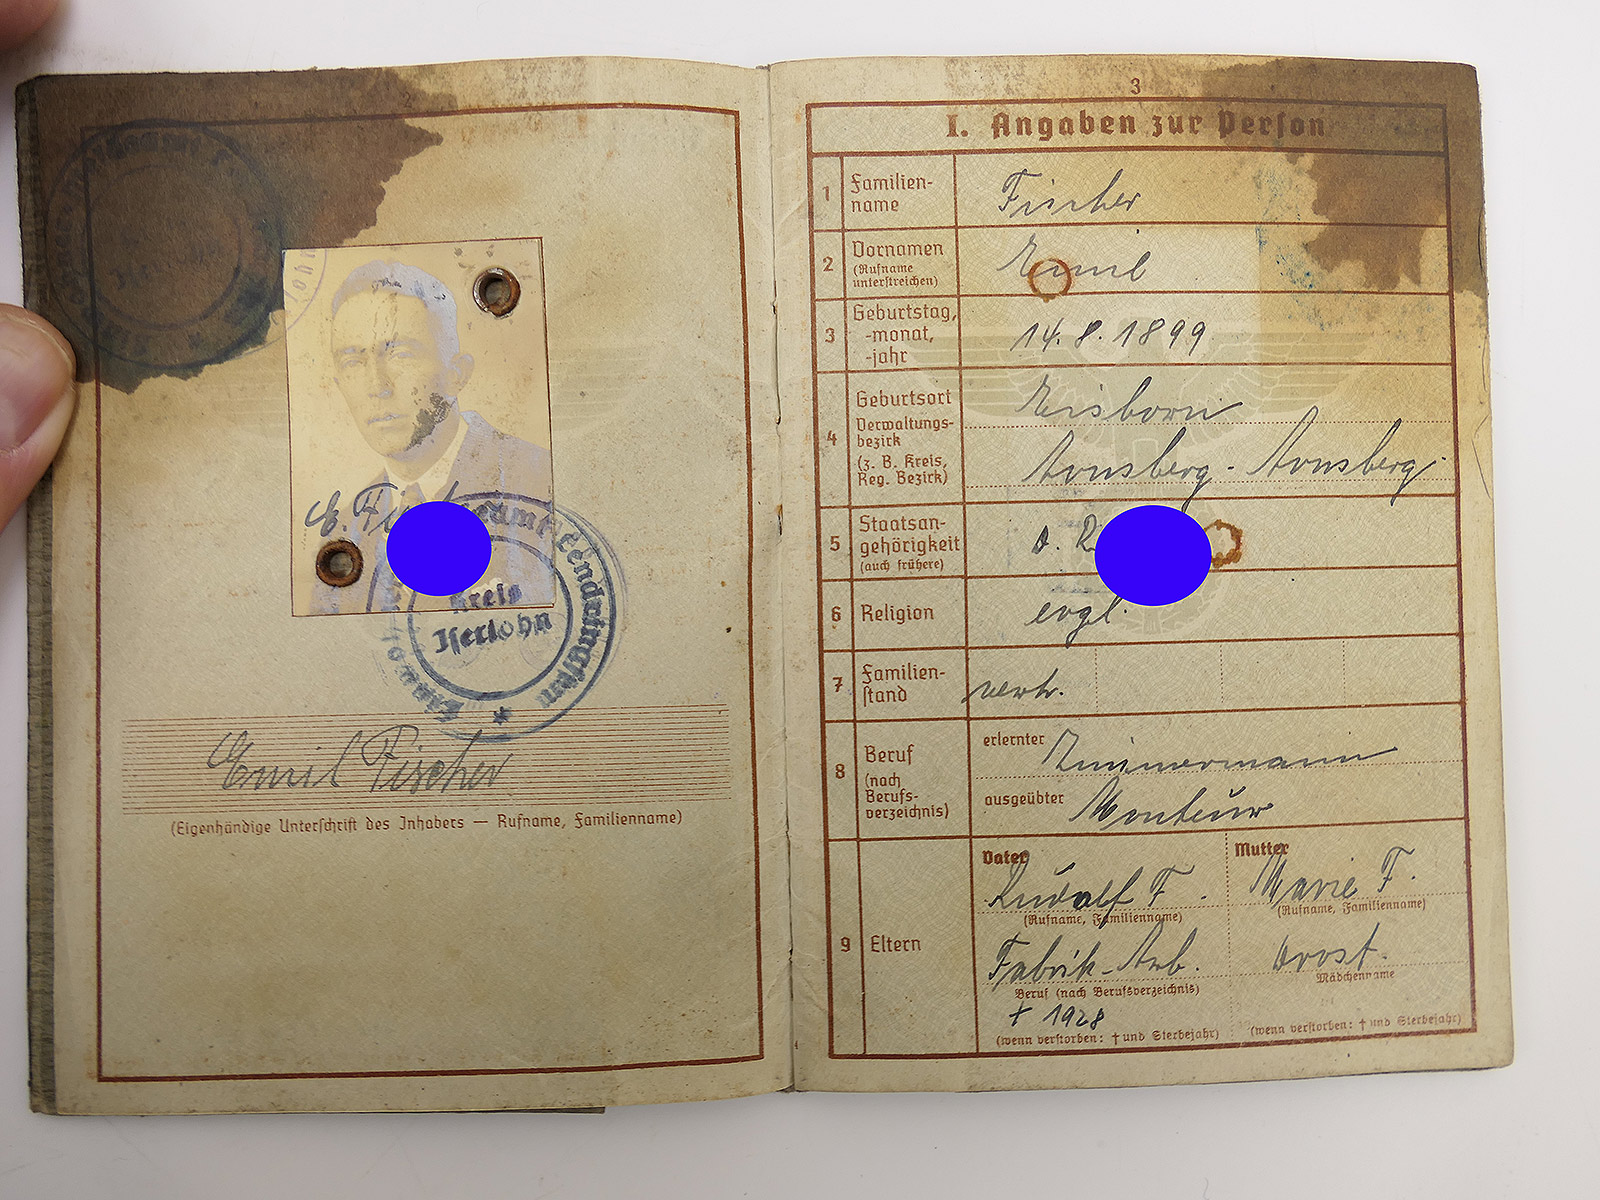 2
E.
Kreis
Iserlohn
Emil Fischer
(Eigenhändige Unterschrift des Inhabers — Rufname, Familienname)
3
I. Angaben zur Person
1 Familien-
name
Fischer
2 Vornamen
(Rufname
unterstreichen)
Emil
3 Geburtstag,
-monat,
-jahr
14. 8. 1899
4 Geburtsort
Verwaltungs-
bezirk
(z. B. Kreis,
Reg. Bezirk)
Eisborn
Arnsberg - Arnsberg
5 Staatsan-
gehörigkeit
(auch frühere)
D. R.
6 Religion
evgl.
7 Familien-
stand
verh.
8 Beruf
(nach
Berufs-
verzeichnis)
erlernter Zimmermann
ausgeübter Monteur
9 Eltern
Vater
Rudolf F.
(Rufname, Familienname)
Fabrik-Arb.
Beruf (nach Berufsverzeichnis)
† 1928
(wenn verstorben: † und Sterbejahr)
Mutter
Marie F.
(Rufname, Familienname)
Drost.
Mädchenname
(wenn verstorben: † und Sterbejahr)